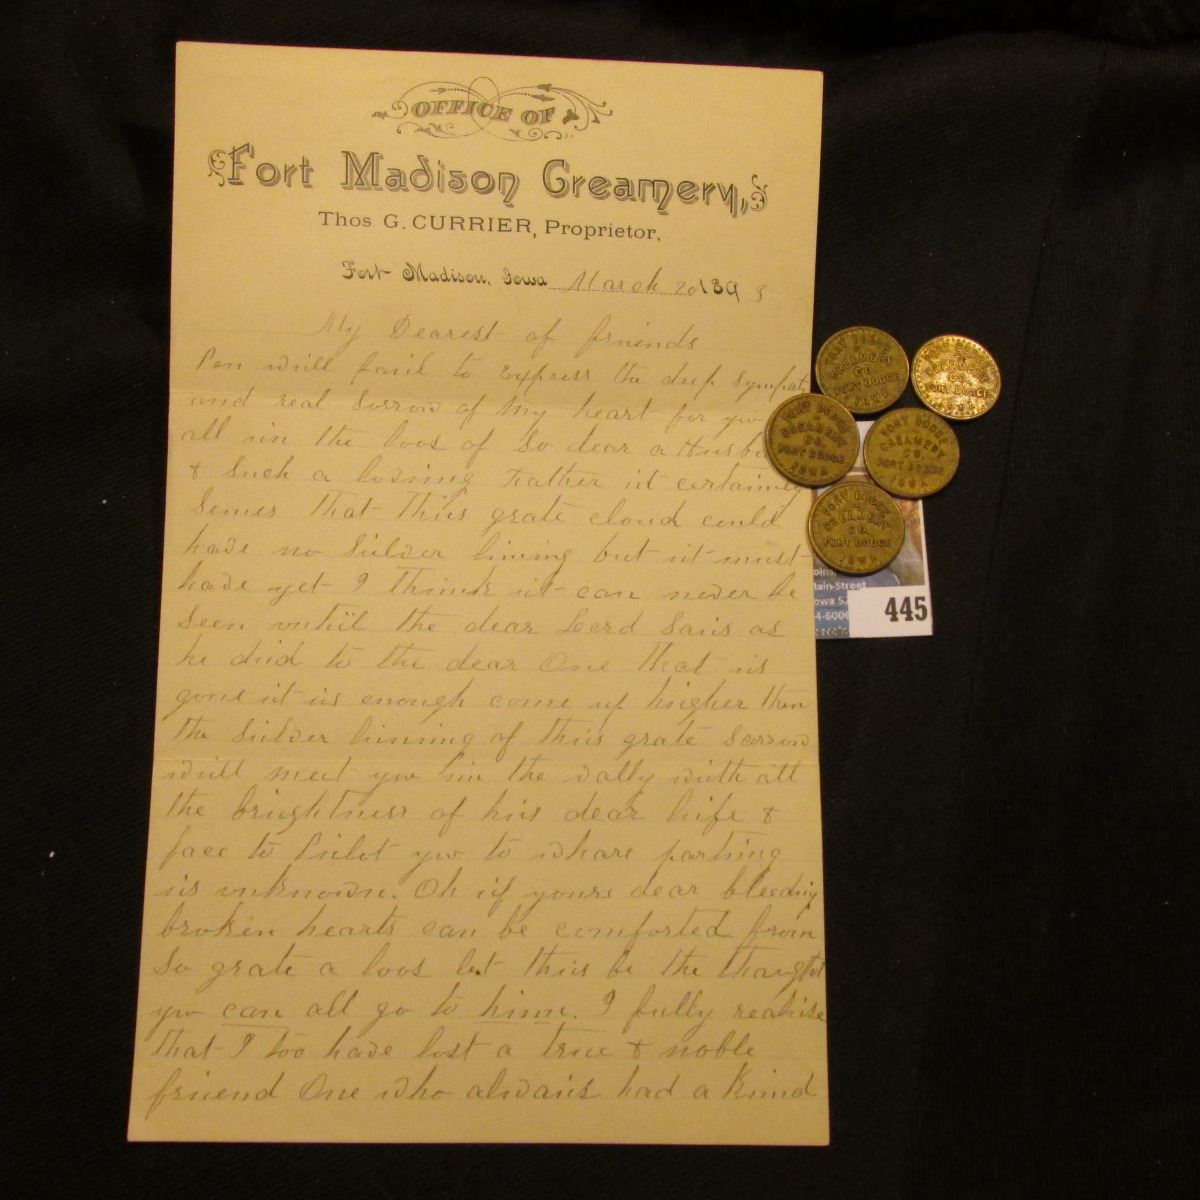 OFFICE OF
Fort Madison Creamery,
Thos G. CURRIER, Proprietor.
Fort Madison, Iowa March 20 1893
My Dearest of friends
Pen will fail to Express the deep Sympat
and real Sorrow of My heart for yw
all in the loos of So dear a Husb
& Such a loving Father it certainly
Semes that this grate cloud could
have no Silver lining but it must
have yet I think it can never be
Seen untill the dear Lord Sais as
he did to the dear One that is
gone it is enough come up higher then
the Silver lining of this grate Sorrow
will meet yw in the vally with all
the brightness of his dear life &
face to Pilot yw to whare parting
is unknown. Oh if yours dear bleeding
broken hearts can be comforted from
So grate a loos let this be the thaught
yw can all go to him. I fully realise
that I too have lost a true & noble
friend One who alwais had a Kind
FORT DODGE
CREAMERY
CO.
FORT DODGE
IOWA
FORT DODGE
CREAMERY
CO.
FORT DODGE
IOWA
FORT DODGE
CREAMERY
CO.
FORT DODGE
IOWA
FORT DODGE
CREAMERY
CO.
FORT DODGE
IOWA
FORT DODGE
CREAMERY
CO.
FORT DODGE
IOWA
oins,
Main-Street
owa 52
4-6006
445